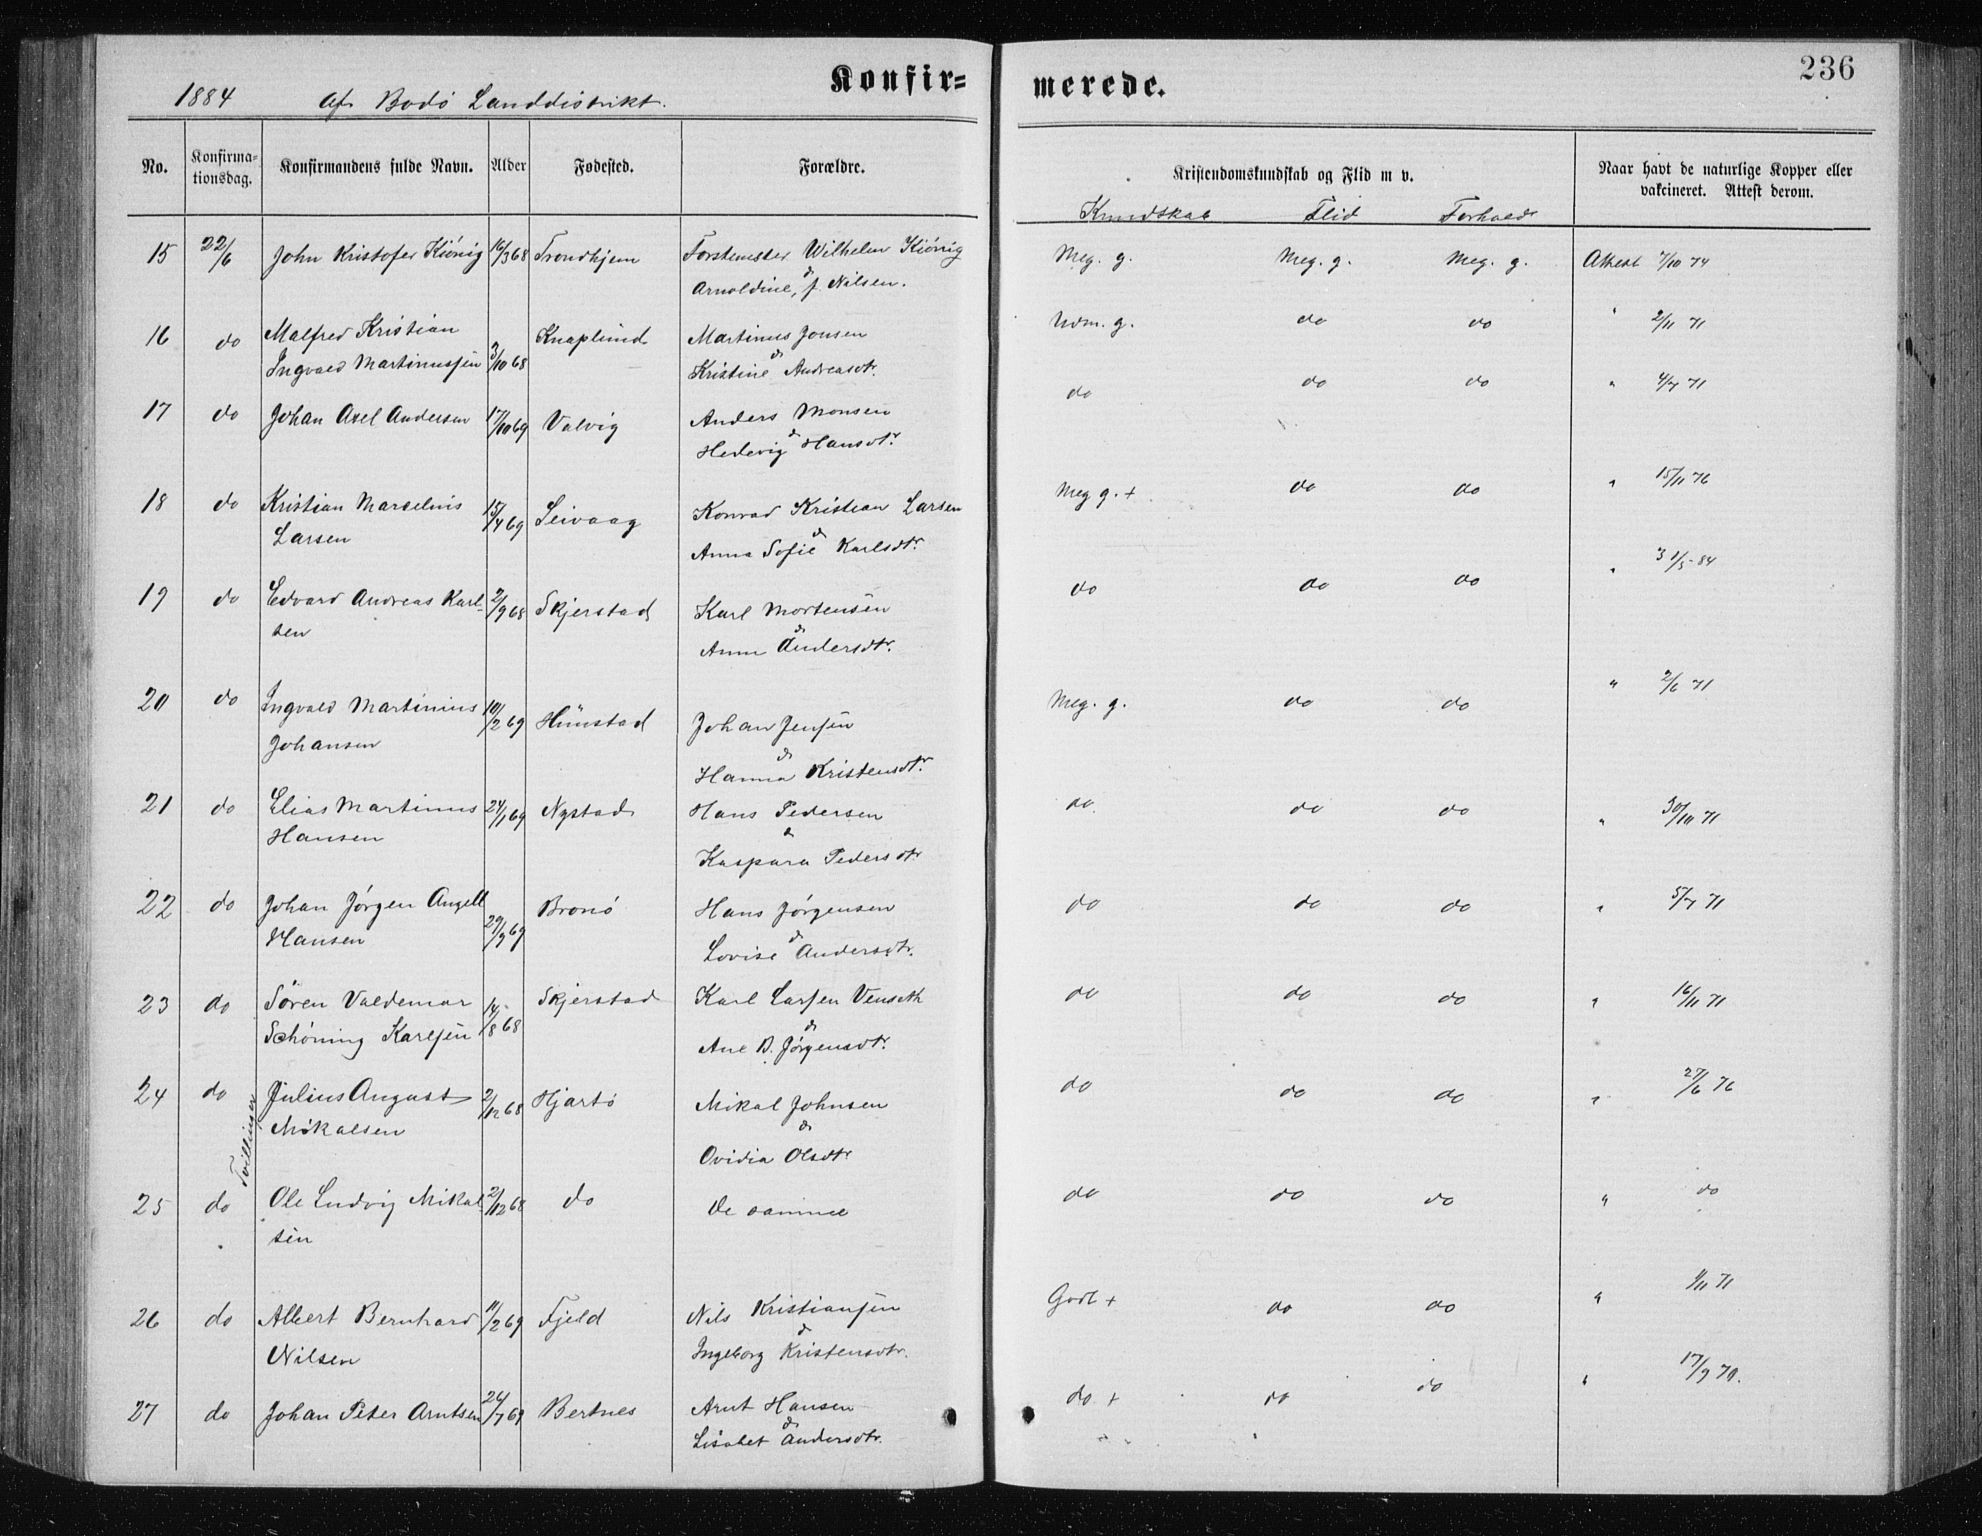 236
Konfir=
merede.
1884 af Bodö Landdistrikt.
No. Konfirma-tionsdag. Konfirmandens fulde Navn. Alder Fødested. Forældre. Kristendomskundskab og Flid m v. Naar havt de naturlige Kopper eller
vakcineret. Attest derom.
Kundskab Flid Forhold
15 22/6 John Kristofer Kiönig 16/3 68 Trondhjem Forstmester Wilhelm Kiönig Meg. g. Meg. g. Meg. g. Attest 7/10 74
& Arnoldine, f. Nilsen.
16 do Malfred Kristian Knaplund Martinus Jonsen Udm. g. do do " 2/11 71
Ingvald Martinussen 3/10 68 & Kristine Andreasdtr.
17 do Johan Axel Andersen 17/10 69 Valvig Anders Monsen do do do " 4/7 71
& Hedevig Hansdtr.
18 do Kristian Marselius 15/4 69 Seivaag Konrad Kristian Larsen Meg g. + do do " 15/11 76
Larsen & Anna Sofie Karlsdtr.
19 do Edvard Andreas Karl- 2/9 68 Skjerstad Karl Mortensen do do do " 31/5-84
sen & Anna Andersdtr.
20 do Ingvald Martinius 10/2 69 Hunstad Johan Jensen Meg. g. do do " 2/6 71
Johansen & Hanna Kristensdtr.
21 do Elias Martinus 24/1 69 Nystad Hans Pedersen do do do " 30/10 71
Hansen & Kaspara Pedersdtr.
22 do Johan Jørgen Angell Bronö Hans Jørgensen do do do " 5/7 71
Hansen 29/9 69 & Lovise Andersdtr.
23 do Søren Valdemar 14/8 68 Skjerstad Karl Larsen Venseth do do do " 16/11 71
Schöning Karlsen & Ane B. Jørgensdtr.
24 do Julius August 2/12 68 Hjartö Mikal Johnsen do do do " 27/6 76
Mikalsen & Ovidia Olsdtr.
Tvillinger
25 do Ole Ludvig Mikal- 2/12 68 do De samme do do do " do
sen
26 do Albert Bernhard 11/2 69 Fjeld Nils Kristiansen Godt + do do " 1/11 71
Nilsen & Ingeborg Kristensdtr.
27 do Johan Peter Arntsen 24/7 69 Bertnes Arnt Hansen do + do do " 17/9 70.
& Lisabet Andersdtr.